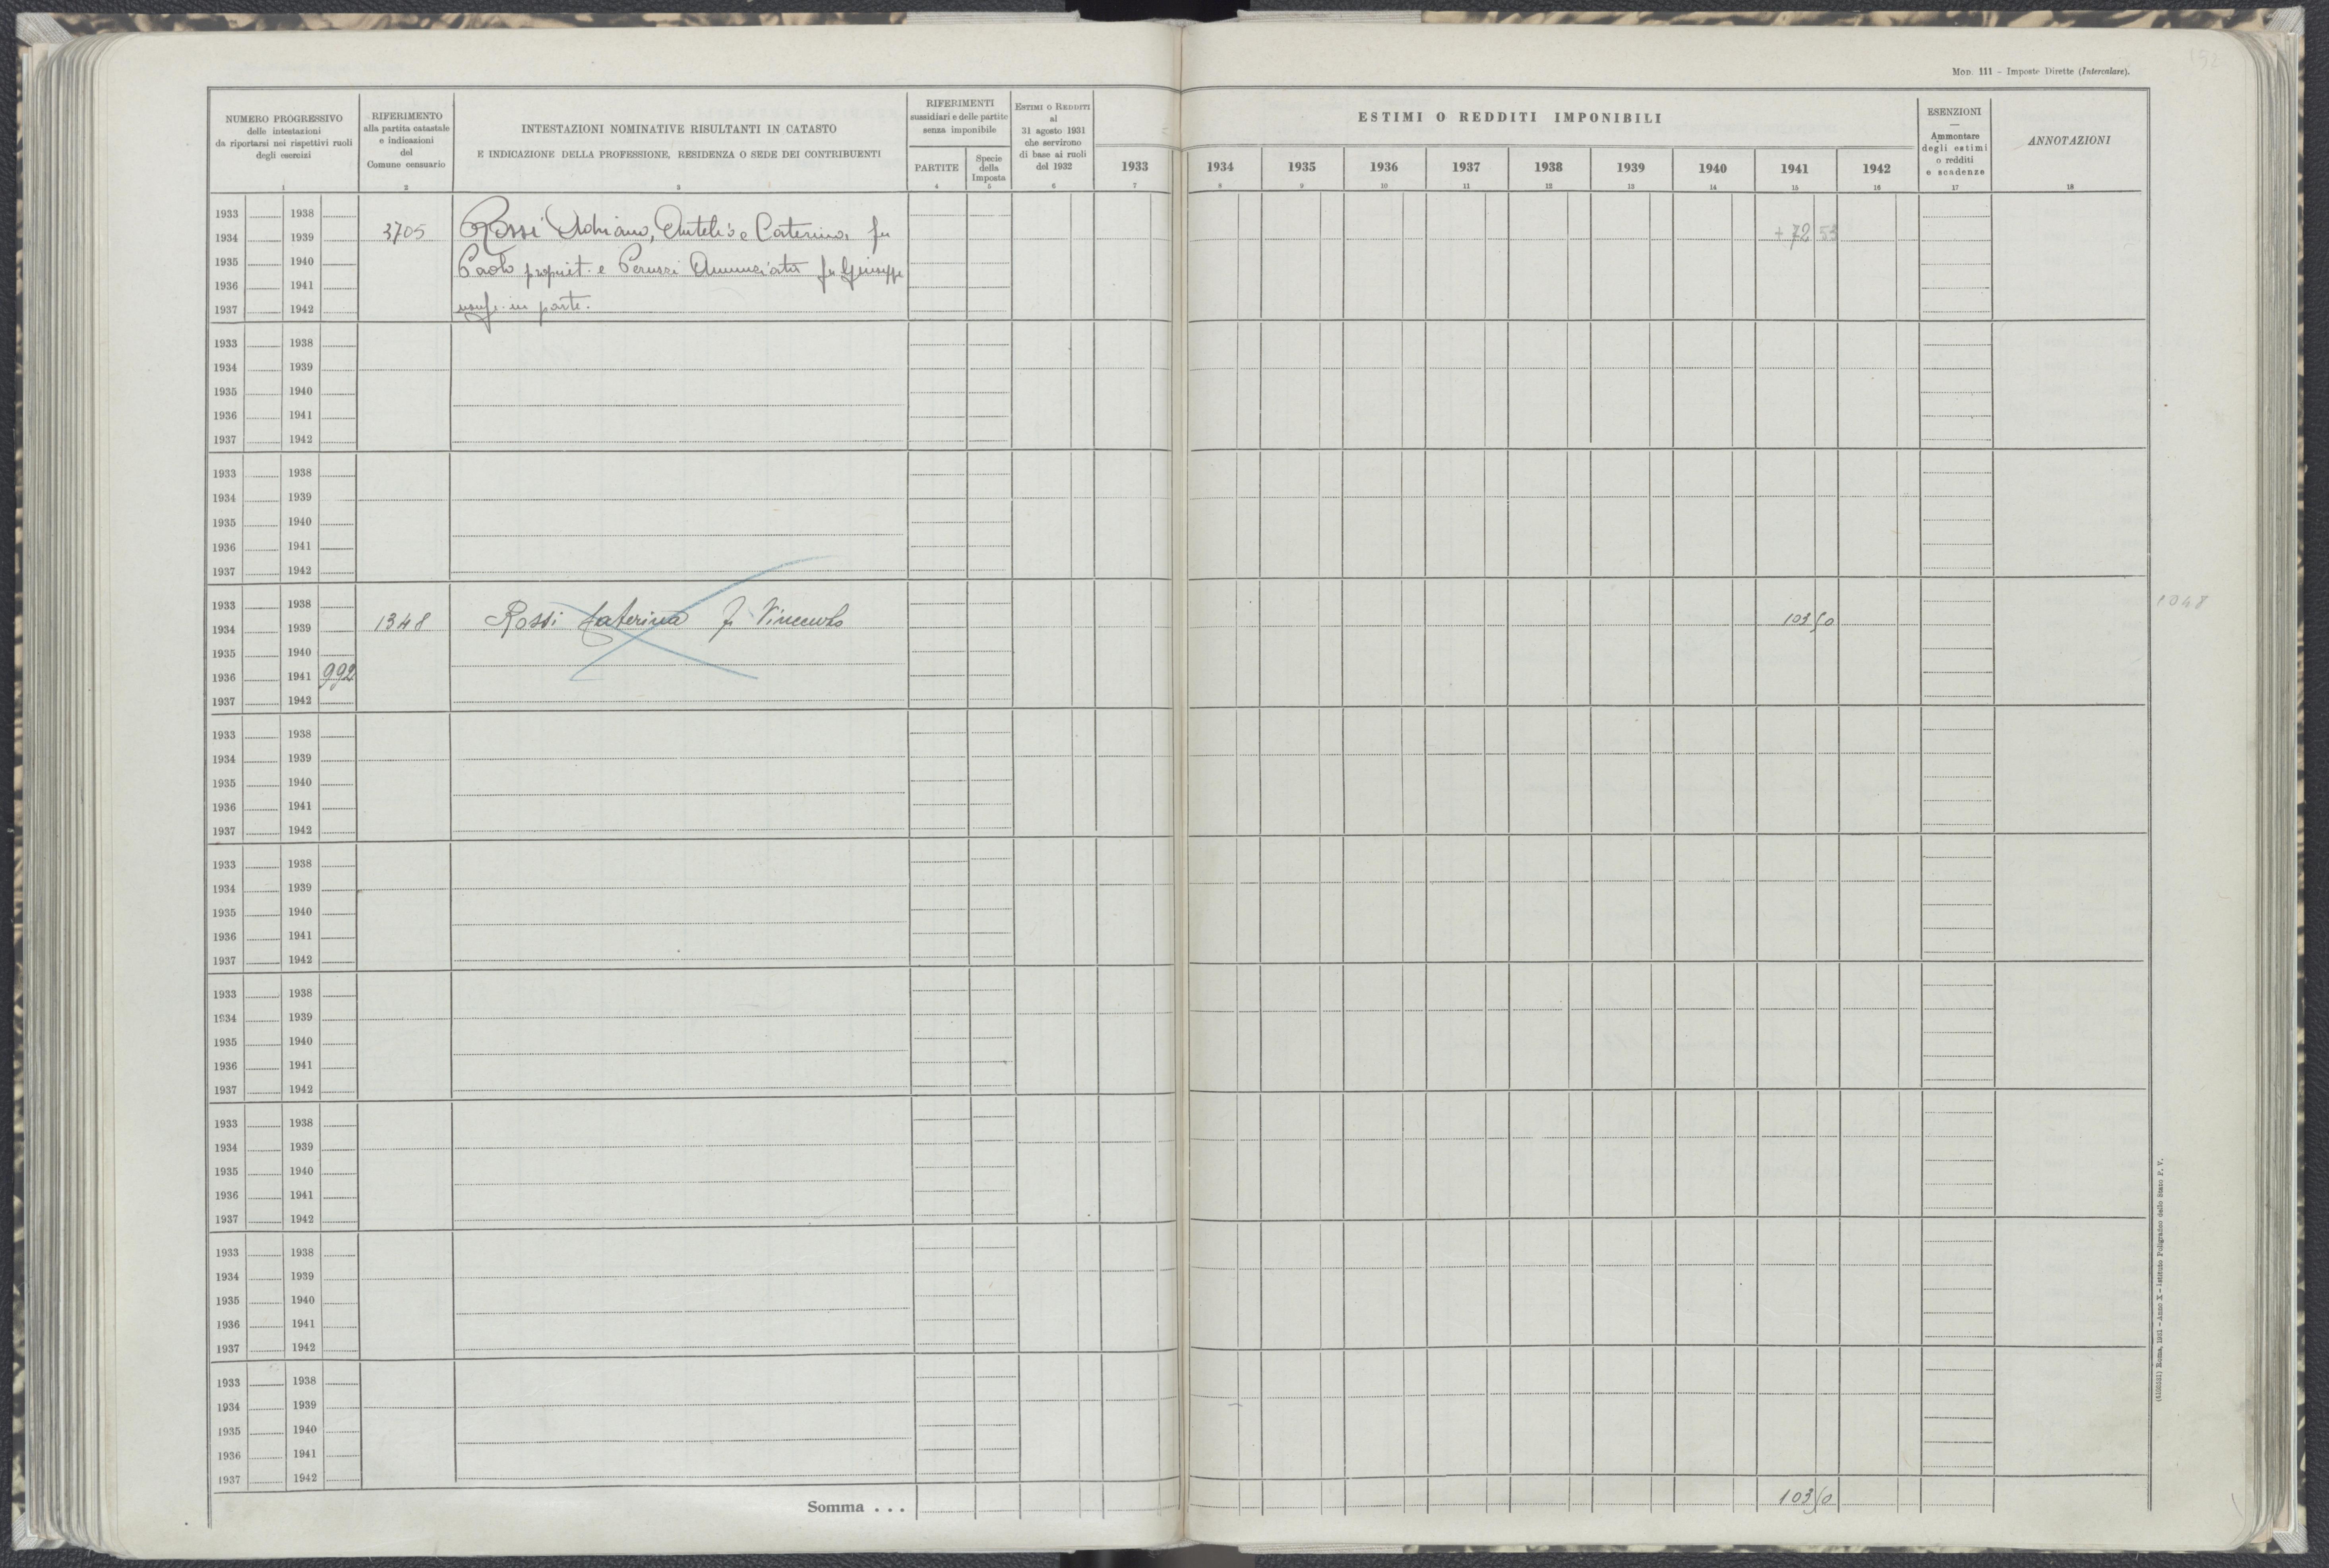 152
MOD. 111 – Imposte Dirette (Intercalare).
NUMERO PROGRESSIVO
delle intestazioni
da riportarsi nei rispettivi ruoli
degli esercizi
1
RIFERIMENTO
alla partita catastale
e indicazioni
del
Comune censuario
2
INTESTAZIONI NOMINATIVE RISULTANTI IN CATASTO
E INDICAZIONE DELLA PROFESSIONE, RESIDENZA O SEDE DEI CONTRIBUENTI
3
RIFERIMENTI
sussidiari e delle partite
senza imponibile
PARTITE
4
Specie
della
Imposta
5
ESTIMI O REDDITI
al
31 agosto 1931
che servirono
di base ai ruoli
del 1932
6
ESTIMI O REDDITI IMPONIBILI
1933 1934 1935 1936 1937 1938 1939 1940 1941 1942
7 8 9 10 11 12 13 14 15 16
ESENZIONI
—
Ammontare
degli estimi
o redditi
e scadenze
17
ANNOTAZIONI
18
1933 1938
1934 1939 3705 Rossi Adriano, e Caterina fu + 72 53
1935 1940 Paolo propriet. e Peruzzi Annunciata fu Giuseppe
1936 1941
1937 1942 usuf. in parte.
1933 1938
1934 1939
1935 1940
1936 1941
1937 1942
1933 1938
1934 1939
1935 1940
1936 1941
1937 1942
1933 1938
1934 1939 1348 Rossi Caterina fu Vincenzo 103 50
1935 1940
1936 1941 992
1937 1942
1933 1938
1934 1939
1935 1940
1936 1941
1937 1942
1933 1938
1934 1939
1935 1940
1936 1941
1937 1942
1933 1938
1934 1939
1935 1940
1936 1941
1937 1942
1933 1938
1934 1939
1935 1940
1936 1941
1937 1942
1933 1938
1934 1939
1935 1940
1936 1941
1937 1942
1933 1938
1934 1939
1935 1940
1936 1941
1937 1942
Somma . . . 103 50
(4100521) Roma, 1931 – Anno X – Istituto Poligrafico dello Stato P. V.